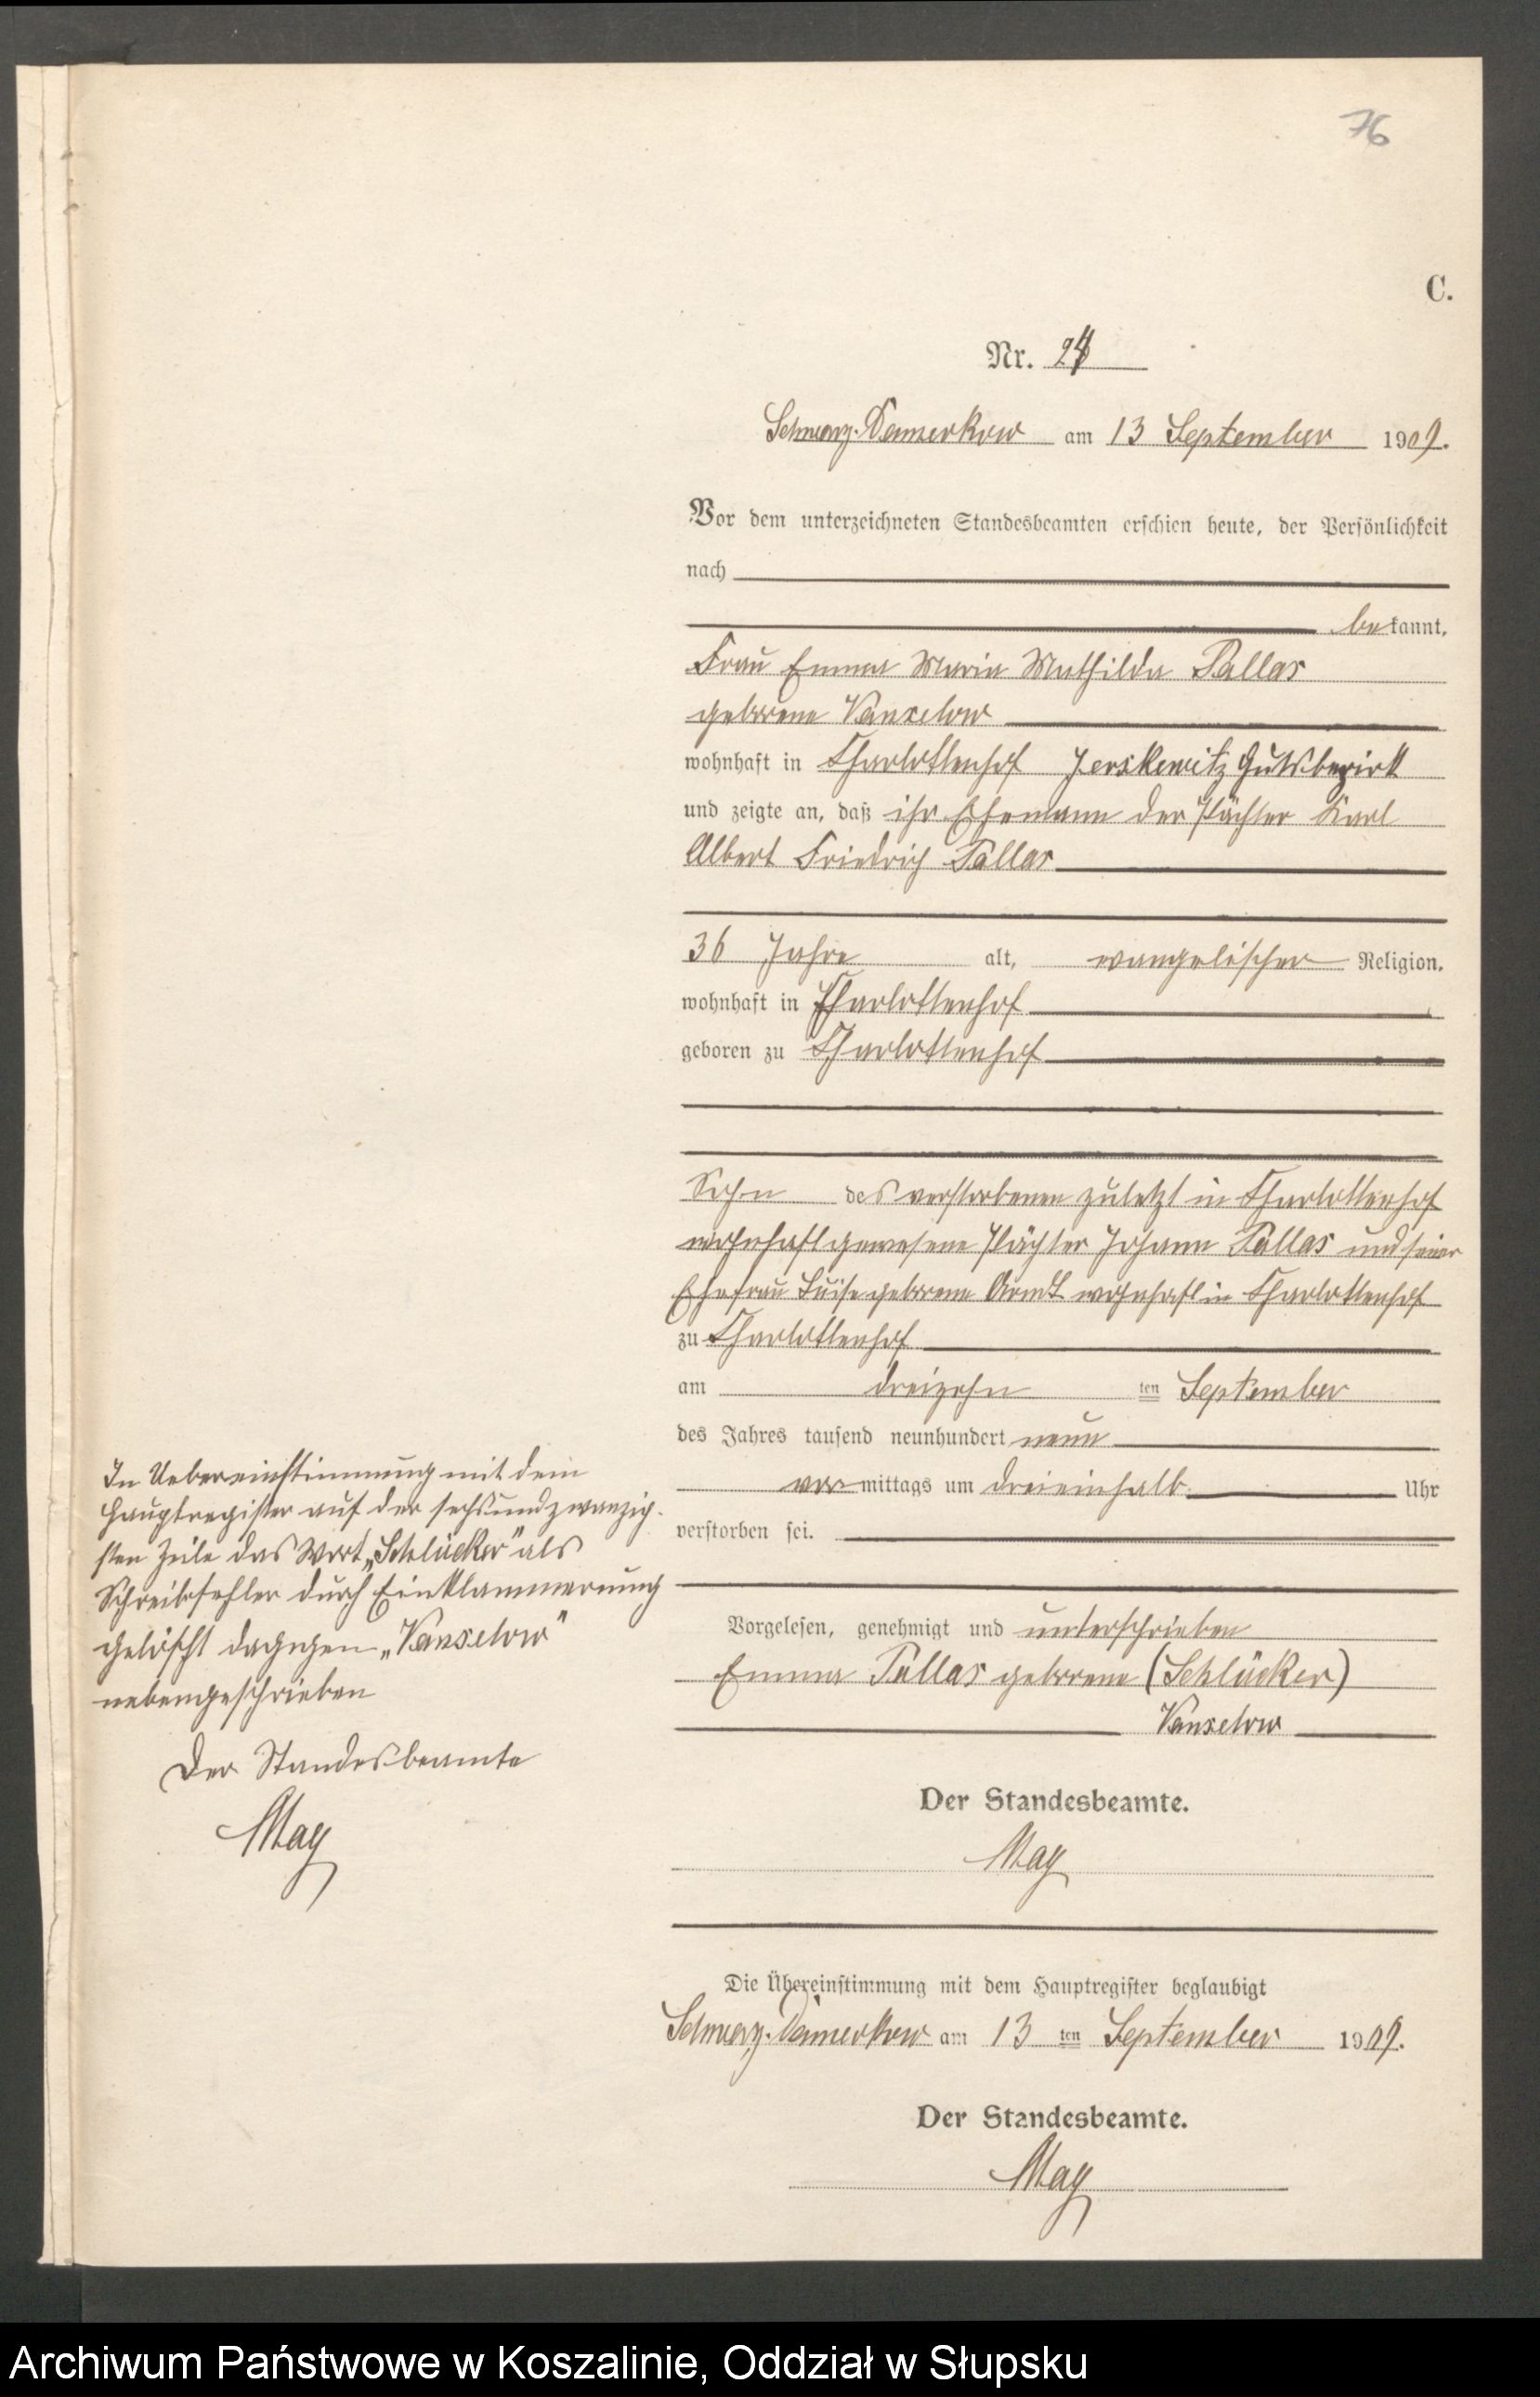 76
C.
Nr. 24
Schwarz-Damerkow am 13 September 1909.
Vor dem unterzeichneten Standesbeamten erschien heute, der Persönlichkeit
nach
bekannt,
Frau Emma Maria Mathilda Pallas
geborene Vanselow
wohnhaft in Charlottenhof Jerskewitz Gutsbezirk
und zeigte an, daß ihr Ehemann der Pächter Karl
Albert Friedrich Pallas
36 Jahre alt, evangelischer Religion,
wohnhaft in Charlottenhof
geboren zu Charlottenhof
Sohn des verstorbenen zuletzt in Charlottenhof
wohnhaft gewesene Pächter Johann Pallas und seiner
Ehefrau Luise geborene Arndt wohnhaft in Charlottenhof
zu Charlottenhof
am dreizehn ten September
des Jahres tausend neunhundert neun
vormittags um dreieinhalb Uhr
verstorben sei.
In Uebereinstimmung mit dem
Hauptregister auf der sechsundzwanzig-
sten Zeile das Wort „Schlücker" als
Schreibfehler durch Einklammerung
gelöscht dagegen „Vanselow"
nebengeschrieben
Der Standesbeamte
May
Vorgelesen, genehmigt und unterschrieben
Emma Pallas geborene (Schlücker)
Vanselow
Der Standesbeamte.
May
Die Übereinstimmung mit dem Hauptregister beglaubigt
Schwarz-Damerkow am 13 ten September 1909.
Der Standesbeamte.
May
Archiwum Państwowe w Koszalinie, Oddział w Słupsku